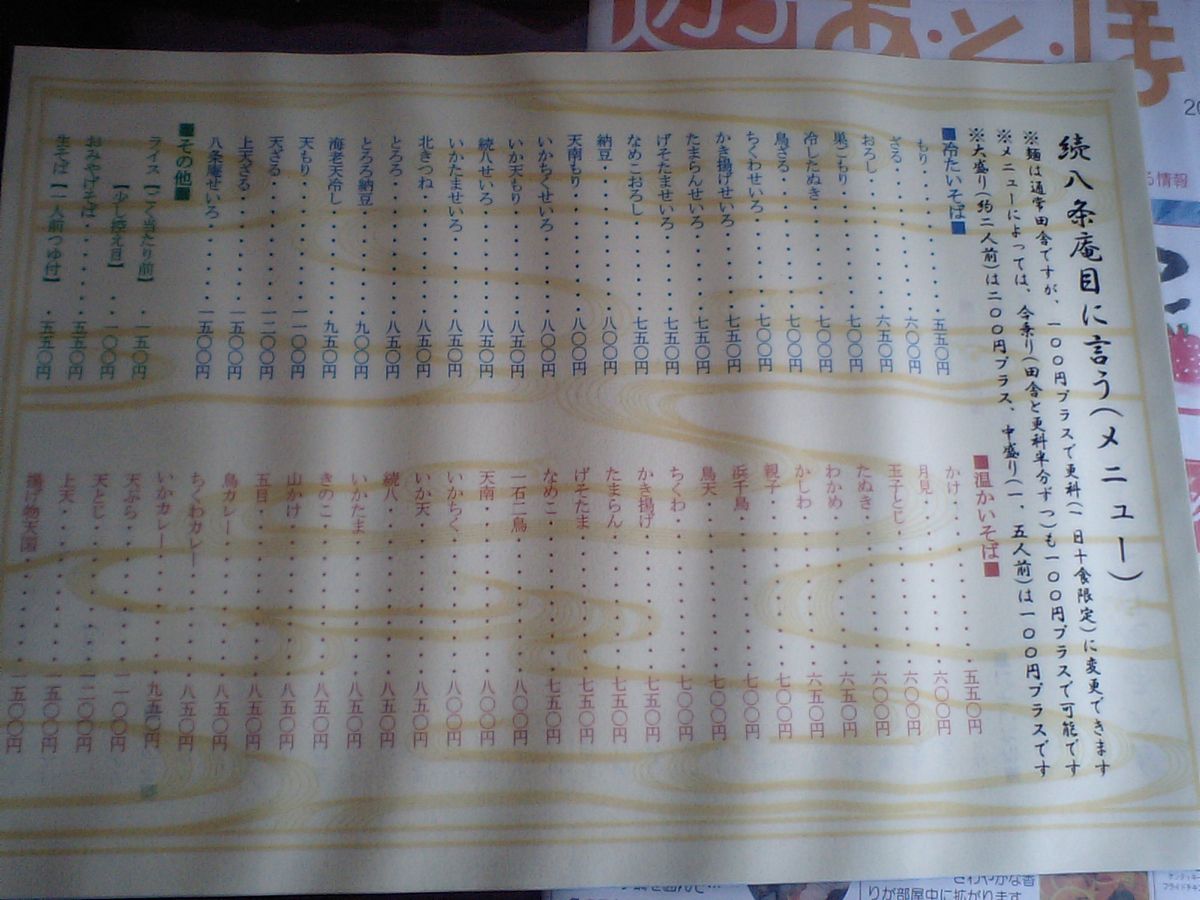 続八条庵目に言う（メニュー）
※麺は通常田舎ですが、一〇〇円プラスで更科（一日十食限定）に変更できます
※メニューによっては、合乗り（田舎と更科半分ずつ）も一〇〇円プラスで可能です
※大盛り（約二人前）は二〇〇円プラス、中盛り（一、五人前）は一〇〇円プラスです
■冷たいそば■
もり・・・・・・・・・五五〇円
ざる・・・・・・・・・六〇〇円
おろし・・・・・・・・六五〇円
巣ごもり・・・・・・・七〇〇円
冷したぬき・・・・・・七〇〇円
鳥ざる・・・・・・・・七〇〇円
ちくわせいろ・・・・・七〇〇円
かき揚げせいろ・・・・七五〇円
たまらんせいろ・・・・七五〇円
げそたませいろ・・・・七五〇円
なめこおろし・・・・・七五〇円
納豆・・・・・・・・・八〇〇円
天南もり・・・・・・・八〇〇円
いかちくせいろ・・・・八〇〇円
いか天もり・・・・・・八五〇円
続八せいろ・・・・・・八五〇円
いかたませいろ・・・・八五〇円
北きつね・・・・・・・八五〇円
とろろ・・・・・・・・八五〇円
とろろ納豆・・・・・・九〇〇円
海老天冷し・・・・・・九五〇円
天もり・・・・・・・一一〇〇円
天ざる・・・・・・・一二〇〇円
上天ざる・・・・・・一五〇〇円
八条庵せいろ・・・・一五〇〇円
■その他■
ライス【ごく当たり前】・一五〇円
【少し控え目】・・一〇〇円
おみやげそば・・・・・五五〇円
生そば【一人前つゆ付】・五五〇円
■温かいそば■
かけ・・・・・・・・・五五〇円
月見・・・・・・・・・六〇〇円
玉子とじ・・・・・・・六〇〇円
たぬき・・・・・・・・六〇〇円
わかめ・・・・・・・・六五〇円
かしわ・・・・・・・・六五〇円
親子・・・・・・・・・七〇〇円
浜千鳥・・・・・・・・七〇〇円
鳥天・・・・・・・・・七〇〇円
ちくわ・・・・・・・・七〇〇円
かき揚げ・・・・・・・七五〇円
たまらん・・・・・・・七五〇円
げそたま・・・・・・・七五〇円
なめこ・・・・・・・・七五〇円
一石二鳥・・・・・・・八〇〇円
天南・・・・・・・・・八〇〇円
いかちく・・・・・・・八〇〇円
いか天・・・・・・・・八五〇円
続八・・・・・・・・・八五〇円
いかたま・・・・・・・八五〇円
きのこ・・・・・・・・八五〇円
山かけ・・・・・・・・八五〇円
五目・・・・・・・・・八五〇円
鳥カレー・・・・・・・八五〇円
ちくわカレー・・・・・八五〇円
いかカレー・・・・・・九五〇円
天ぷら・・・・・・・一一〇〇円
天とじ・・・・・・・一二〇〇円
上天・・・・・・・・一五〇〇円
揚げ物天国・・・・・一五〇〇円
あ・そ・ぼ
20
る情報
さわやかな香
りが部屋中に拡がります